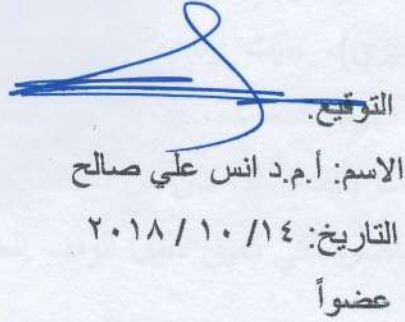 التوقيع:
الاسم: أ.م.د انس علي صالح
التاريخ: ١٤/ ١٠ / ٢٠١٨
عضواً